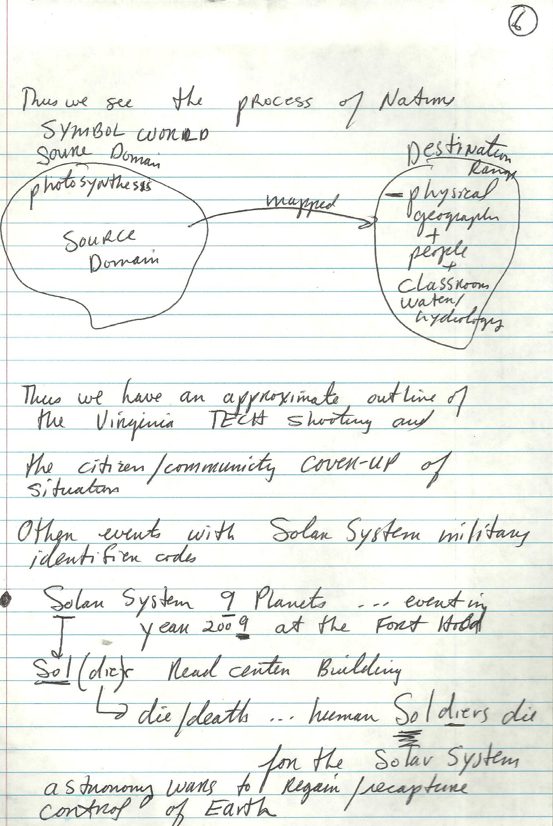 6
Thus we see the process of Nature
SYMBOL WORLD
Source Domain
photosynthesis
SOURCE
Domain
mapped
Destination
Range
physical
geography
+
people
+
classroom
water/
hydrology
Thus we have an approximate outline of
the Virginia TECH shooting and
the citizen/community COVER-UP of
situation
Other events with Solar System military
identifier codes
Solar System 9 Planets ... event in
year 2009 at the Fort Hood
Sol(die)r Read center Building
die/death ... human Soldiers die
for the Solar System
astronomy wars to Regain/recapture
control of Earth